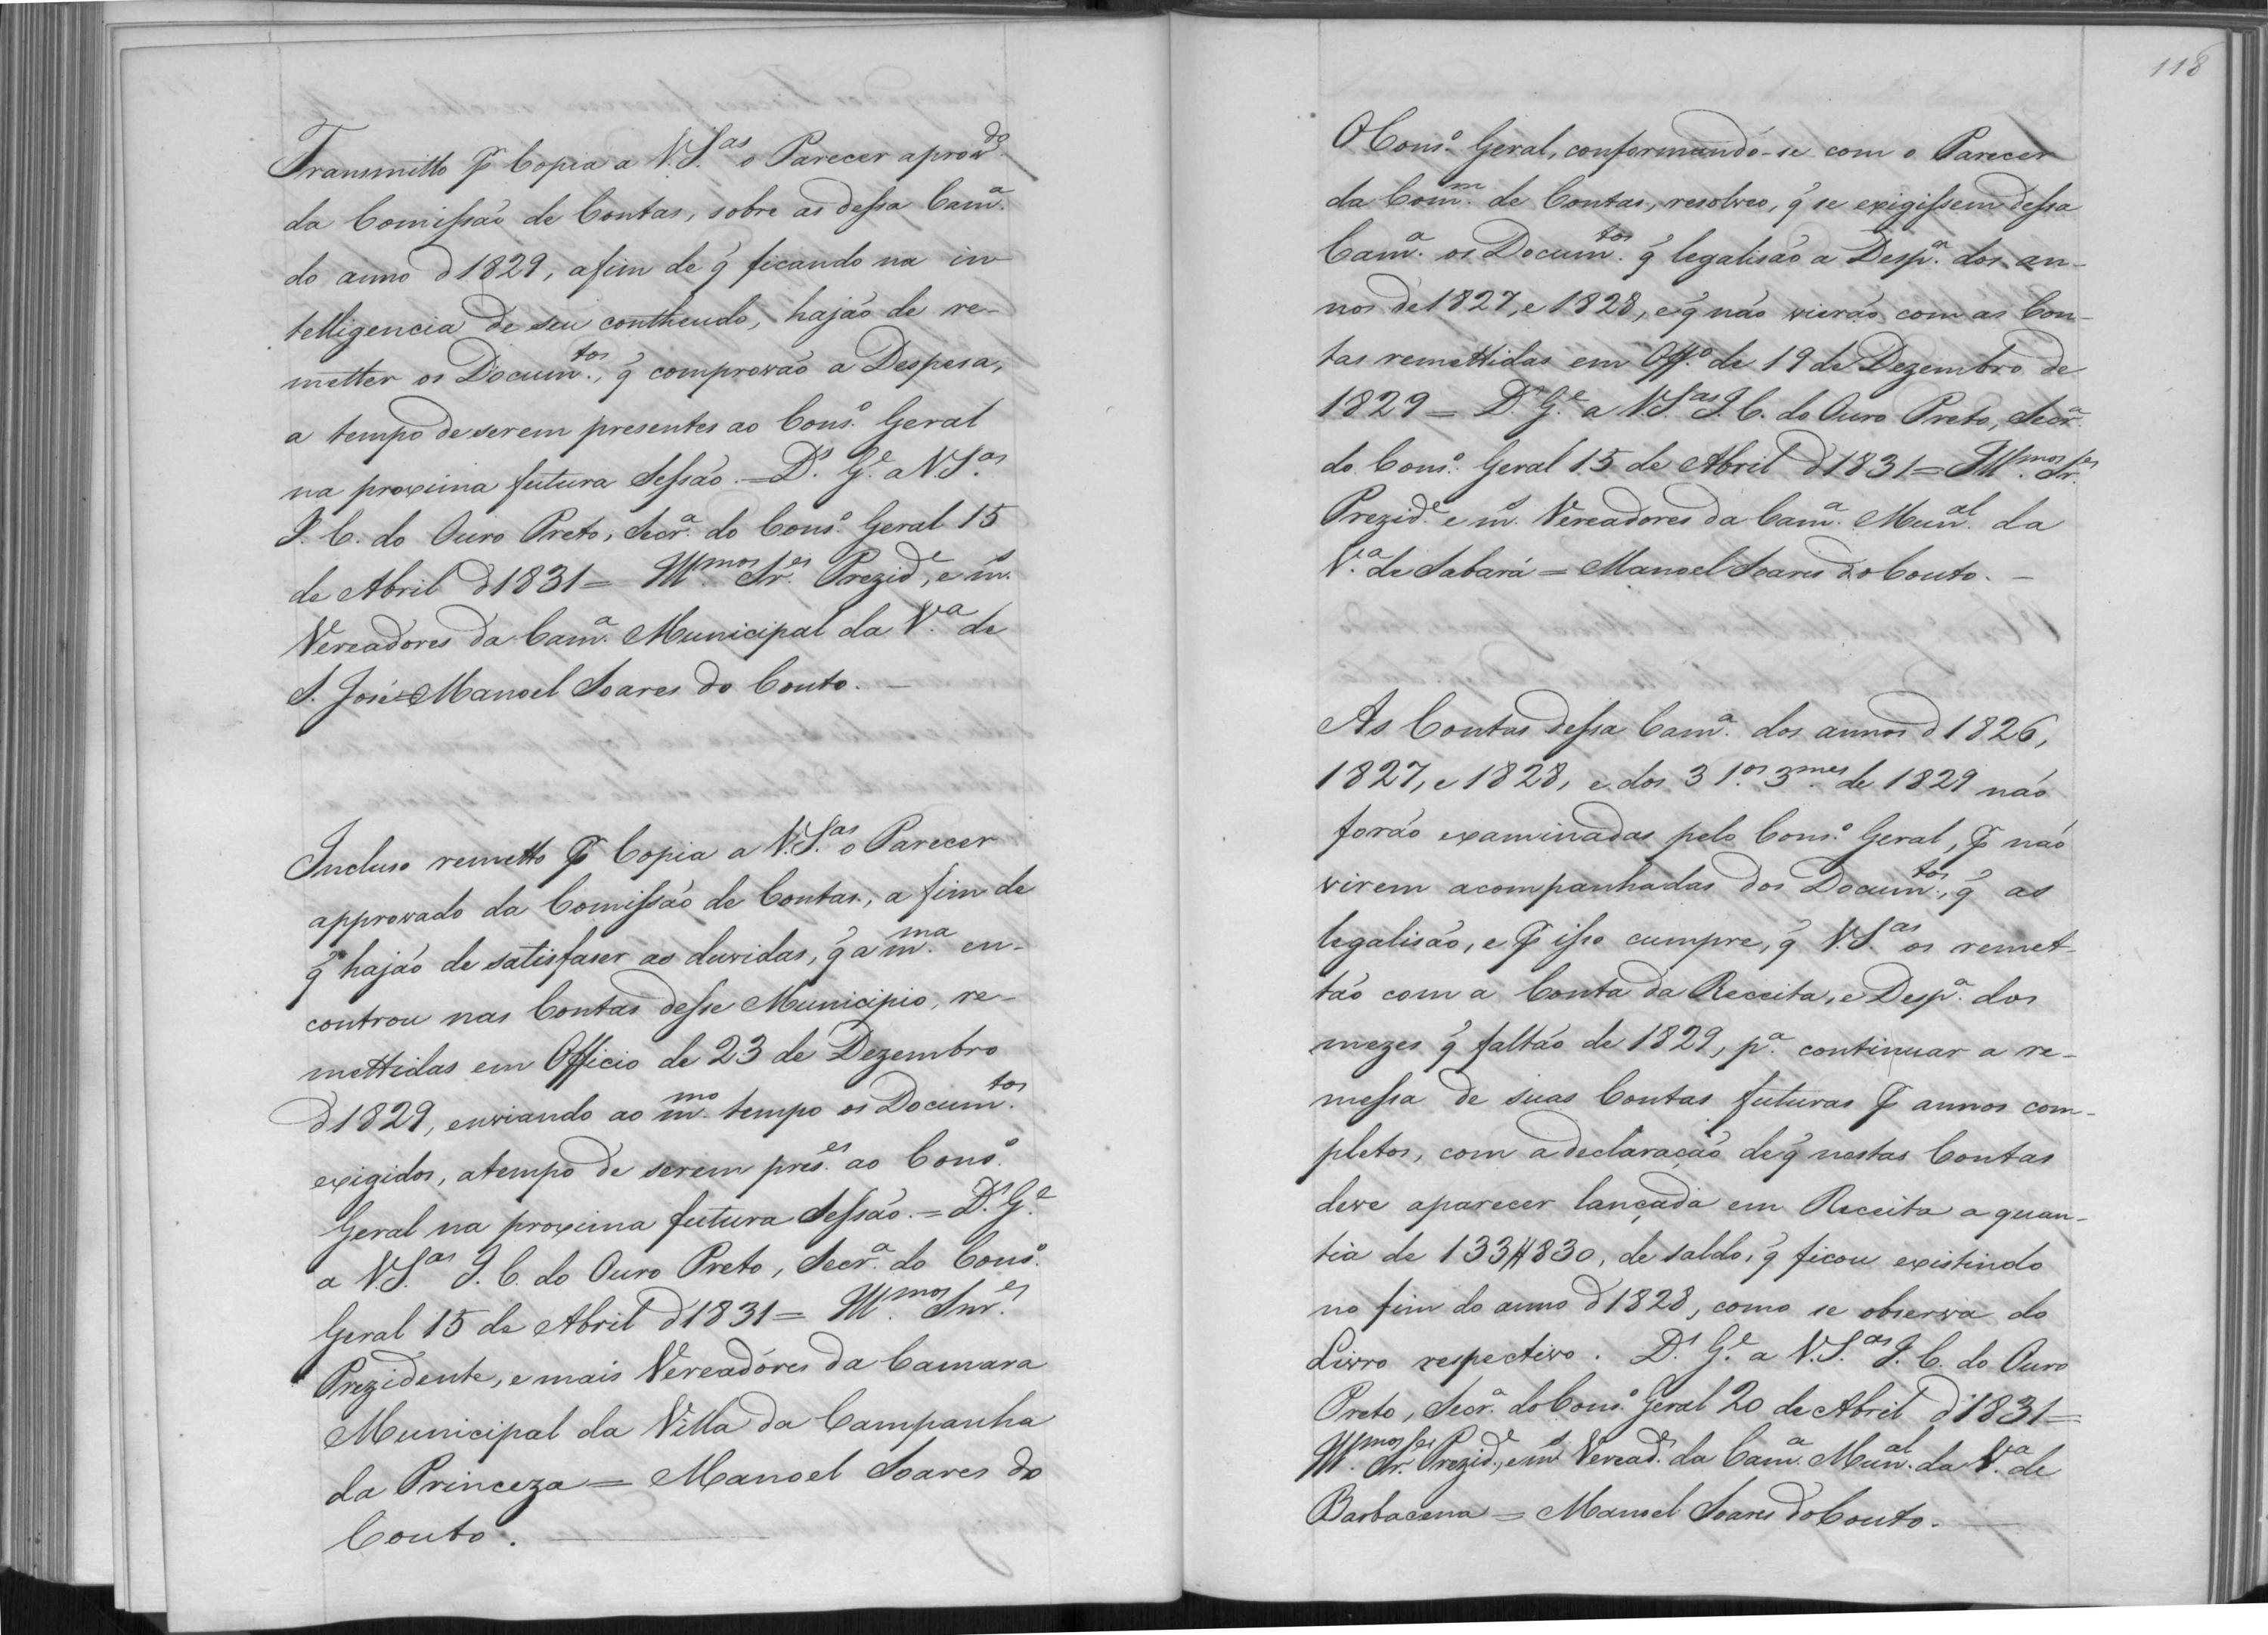 Transmitto p Copia a V. S.as o Parecer aprovdo.
da Comissão de Contas, sobre as dessa Cam.a
do anno d 1829, afim de q̃ ficando na in
telligencia de seu contheudo, hajão de re-
metter os Docum.tos, q̃ comprovão a Despesa,
a tempo de serem presentes ao Cons.o Geral
na proxima futura Sessão. = D.s G.e a V. S.as
I. C. do Ouro Preto, Secr.a do Cons.o Geral 15
de Abril d 1831 = Ill.mos Sr.es Prezid.e, e m.s
Vereadores da Cam.a Municipal da V.a de
S. José = Manoel Soares do Couto. —
Incluso remetto p Copia a V. S.as o Parecer
approvado da Comissão de Contas, a fim de
q̃ hajão de satisfaser as duvidas, q̃ a m.ma en-
controu nas Contas desse Municipio, re-
mettidas em Officio de 23 de Dezembro
d 1829, enviando ao m.mo tempo os Docum.tos
exigidos, atempo de serem pres.es ao Cons.o
Geral na proxima futura Sessão. = D.s G.e
a V. S.as I. C. do Ouro Preto, Secr.a do Cons.o
Geral 15 de Abril d 1831 = Ill.mos Snr.es
Prezidente, e mais Vereadores da Camara
Municipal da Villa da Campanha
da Princeza = Manoel Soares do
Couto. —
118
O Cons.o Geral, conformando-se com o Parecer
da Com.m de Contas, resolveo, q̃ se exigissem dessa
Cam.a os Docum.tos q̃ legalisão a Desp.a dos an-
nos de 1827, e 1828, e q̃ não vierão com as Con-
tas remettidas em Off.o de 19 de Dezembro de
1829 = D.s G.e a V. S.as I. C. do Ouro Preto, Secr.a
do Cons.o Geral 15 de Abril d 1831 = Ill.mos Sr.es
Prezid.e e m.s Vereadores da Cam.a Mun.al da
V.a de Sabará = Manoel Soares do Couto. —
As Contas dessa Cam.a dos annos d 1826,
1827, e 1828, e dos 3 1.os 3.mes de 1829 não
forão examinadas pelo Cons.o Geral, p não
virem acompanhadas dos Docum.tos, q̃ as
legalisão, e p isso cumpre, q̃ V. S.as os remet-
tão com a Conta da Receita, e Desp.a dos
mezes q̃ faltão de 1829, p.a continuar a re-
messa de suas Contas futuras p annos com-
pletos, com a declaração de q̃ nestas Contas
deve aparecer lançada em Receita a quan-
tia de 133$830, de saldo, q̃ ficou existindo
no fim do anno d 1828, como se observa do
Livro respectivo. D.s G.e a V. S.as I. C. do Ouro
Preto, Secr.a do Cons.o Geral 20 de Abril d 1831 =
Ill.mos Sr.es Prezid.e, e m.s Veread.es da Cam.a Mun.al da V.a de
Barbacena = Manoel Soares do Couto. —